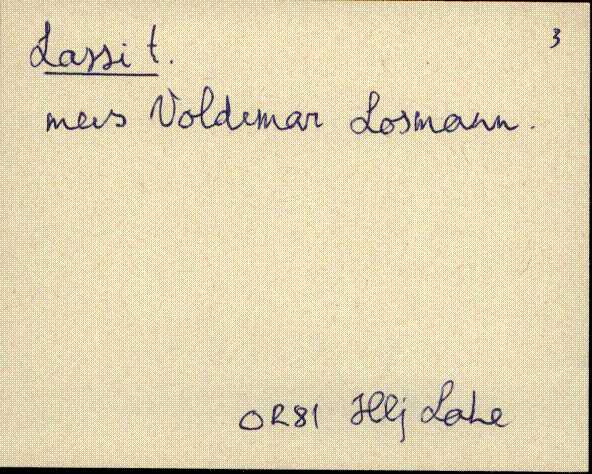 3
Lassi t.
mees Voldemar Losmann.
OR81 Hlj Lahe